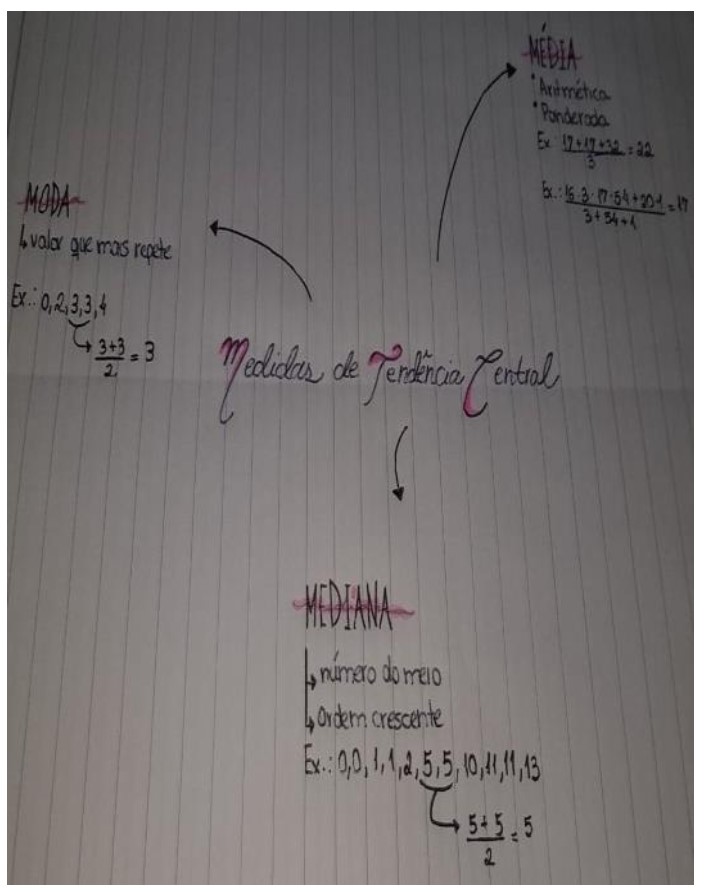 MÉDIA
• Aritmética
• Ponderada
Ex: 17+17+32 = 22
3
Ex.: 15·3·17·54+20·1 = 17
3+54+1
MODA
↳ valor que mais repete
Ex.: 0,2,3,3,4
3+3 = 3
2
Medidas de Tendência Central
MEDIANA
↳ número do meio
↳ ordem crescente
Ex.: 0,0,1,1,2,5,5,10,11,11,13
5+5 = 5
2